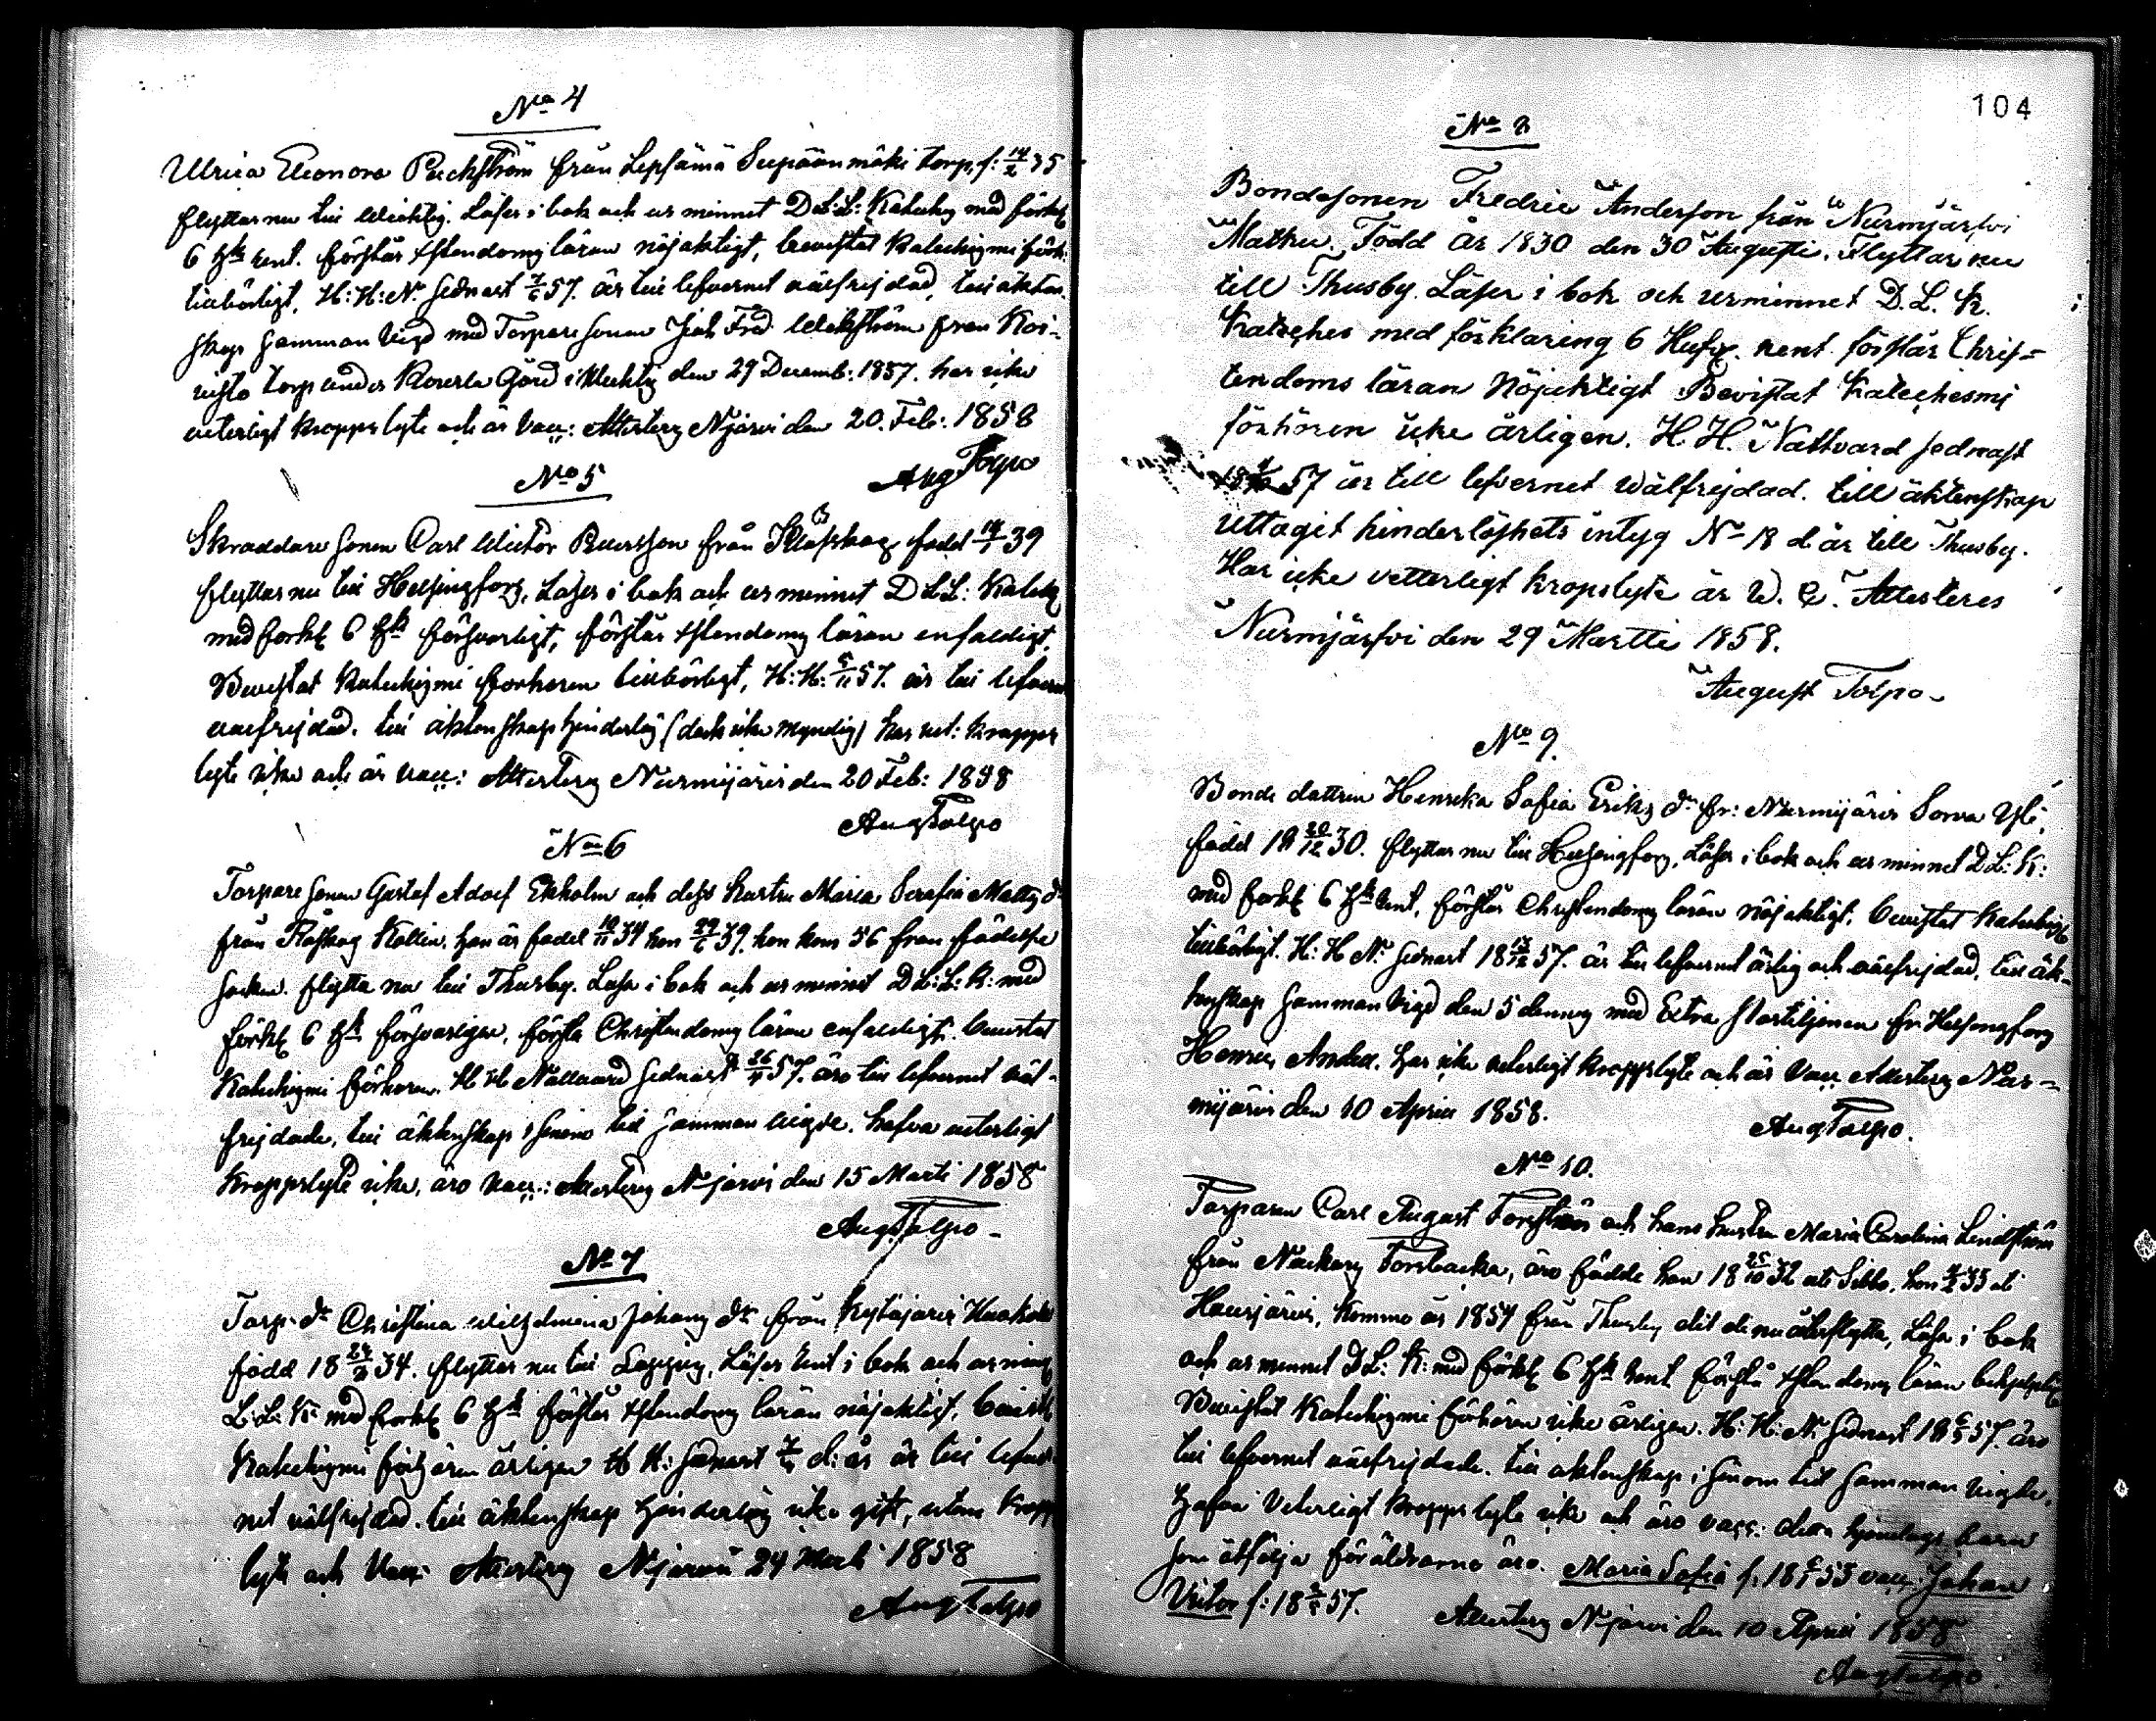 No 4
Ulrica Eleonora Packström från Lepsämä Seepään mäki torp, f: 14/2 35
flyttar nu till Wichtis. Läser i bok och ur minnet D.L.L: Katech: med förkl
6 Hst rent. förstår xstendoms läran nöjaktigt, bevistat Katechismi förh:
tillbörligt, H: H: N: sednast 7/6 57. är till lefvernet välfrejdad, till äkten-
skap samman vigd med Torpare sonen Joh Fred Wickström från Koi-
visto torp under Kourla Gård i Wichtis den 29 Decemb: 1857. har icke
veterligt kroppslyte och är Vacc: Attesteras Njärvi den 20. Feb: 1858
Aug Tolpo
No 5
Skräddare sonen Carl Wictor Peersson från Klöfskog född 14/1 39
flyttar nu till Helsingfors, Läser i bok och ur minnet D L.L: Katek
med förkl 6 Hst försvarligt, förstår xstendoms läran enfaldigt,
Bevistat Katechizmi förhören tillbörligt, H: H: 5/11 57. är till lefvern
välfrejdad. till äktenskap hinderlös (dock icke myndig) har vet: kropps
lyte icke och är vacc: Attesteras Nurmijärvi den 20 Feb: 1858
Aug Tolpo
No 6
Torpare sonen Gustaf Adolf Ekholm och dess hustru Maria Serafia Matts dr
från Röfskog Kallin. han är född 10/11 34 hon 29/6 39. hon kom 56 från födelse
socken. flytta nu till Thusby. Läsa i bok och ur minnet D L: L: K: med
förkl 6 Hst försvarligen, förstå Christendoms läran enfaldigt. bevistat
Katechizmi förhören. H H Nattvard sednast 26/4 57. äro till lefvernet väl-
frejdade, till äktenskap i sinom tid samman vigde. hafva veterligt
kroppslyte icke, äro vacc: Attesteras N järvi den 15 Marti 1858
Aug Tolpo -
No 7
Torp. dr Christina Wilhelmina Johans dr från Kytäjärvi
född 18 24/2 34. flyttar nu till Loppis, Läser rent i bok och ur minn
L: L: K: med förkl 6 Hst förstår xstendoms läran nöjaktigt, bevist
Katechizmi förhören årligen H H: sednast d: år är till lefver
net välfrejdad. till äktenskap hinderlös icke gift, utom kropp
lyte och Vacc: Attesteras Njärvi 24 Marti 1858
Aug Tolpo
104
No 8
Bondesonen Fredric Anderson från Nurmijärfvi
Mathu. Född År 1830 den 30 Augusti. Flyttar nu
till Thusby. Läser i bok och urminnet D. L. K.
Kateches med förklaring 6 Husf. rent. förstår Chris=
tendoms läran Nöjaktigt Bevistat Katechesmi
förhören icke årligen. H. H. Nattvard sednast
57 är till lefvernet wälfrejdad. till äktenskap
uttagit hinderlöshets intyg No 18 d. år till Thusby.
Har icke vetterligt kropslyte är W. C. Attesteres
Nurmijärfvi den 29 Martii 1858.
August Tolpo -
No 9.
Bonde dottren Henrika Sofia Eriks dr fr: Nurmijärvi Sorva Yli,
född 18 20/12 30. flyttar nu till Helsingfors, Läser i bok och ur minnet D L: K:
med förkl 6 Hst rent, förstår Christendoms läran nöjaktigt. bevistat Katechiz
tillbörligt. H: H N: sednast 18 13/12 57. är till lefvernet ärlig och välfrejdad, till äk-
tenskap samman vigd den 5 dennes med Extra postiljonen fr: Helsingfors
Henric. har icke veterligt kroppslyte och är Vacc Attesteras Nur=
mijärvi den 10 April 1858.
Aug Tolpo.
No 10.
Torparen Carl August Forsström och hans hustru Maria Carolina Lindström
från Nackars Forsbacka, äro födde han 18 25/10 32 uti Sibbo, hon 4/2 33 uti
Hausjärvi, komme år 1854 från Thusby dit de nu återflytta, Läsa i bok
och ur minnet D L: K: med förkl 6 Hst rent förstå xstendoms läran
Bevistat Katechizmi förhören icke årligen. H: H: N: sednast 18 57. äro
till lefvernet välfrejdade. till äktenskap i sinom tid samman vigde.
Hafva Veterligt kropps lyte icke och äro vacc: detta hjonelags barn
som åtfölja föräldrarne äro. Maria Sofia f: 18 55 vacc. Johan
Victor f: 18 57. Attesteras N järvi den 10 April 1858
Aug Tolpo.